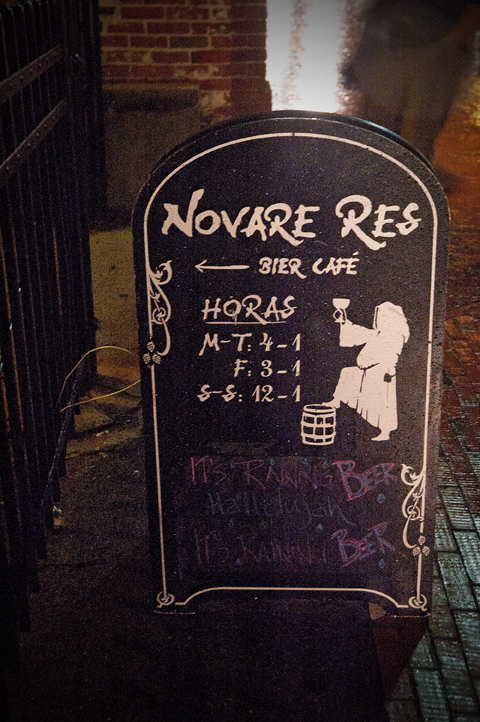 NOVARE RES
BIER CAFÉ
HORAS
M-T: 4-1
F: 3-1
S-S: 12-1
IT'S RAINING BEER
Hallelujah
IT'S RAINING BEER